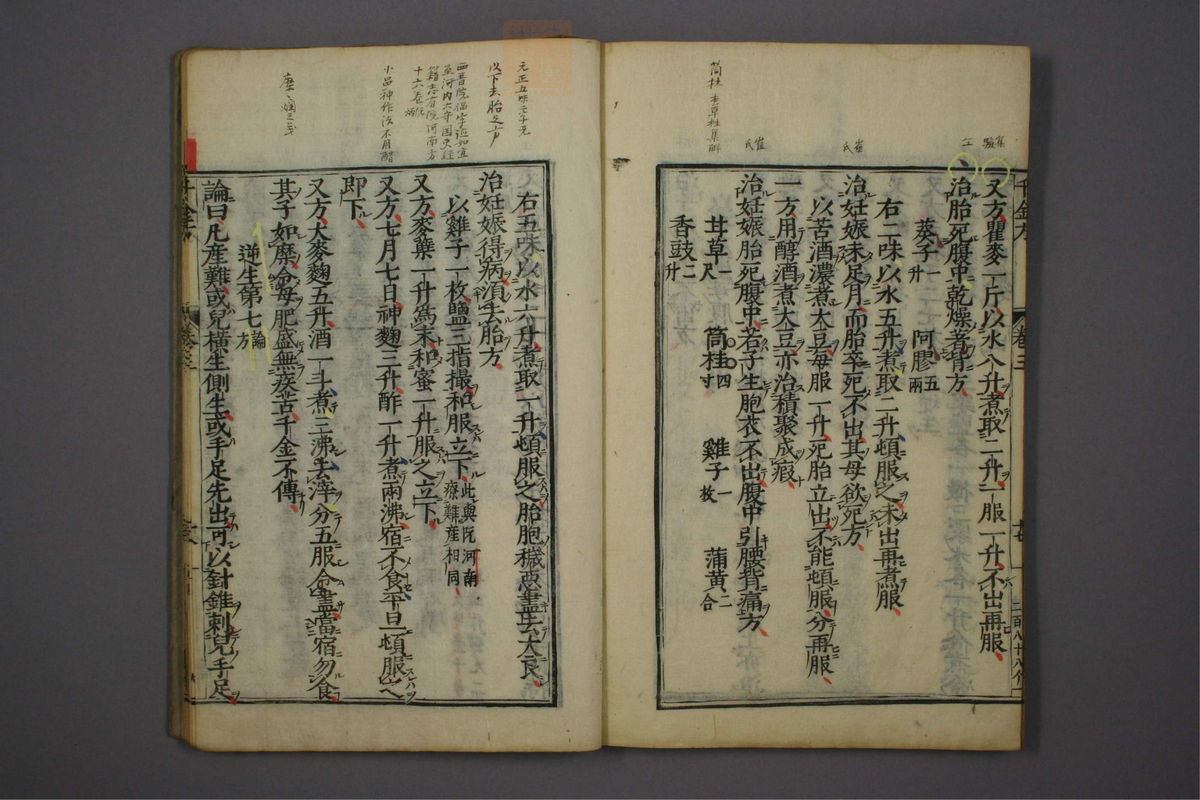 又方瞿麥一斤以水八升煮取二升一服一升不出再服
治胎死腹中乾燥著背方
葵子一升 阿膠五兩
右二味以水五升煮取二升頓服之未出再煮服
治妊娠未足月而胎卒死不出其母欲死方
以苦酒濃煮大豆每服一升死胎立出不能頓服分再服
一方用醇酒煮大豆亦治積聚成瘕
治妊娠胎死腹中若子生胞衣不出腹中引腰背痛方
甘草一尺 筒桂四寸 雞子一枚 蒲黃二合
香豉二升
右五味以水六升煮取一升頓服之胎胞穢惡盡去大良
治妊娠得病須去胎方
以雞子一枚鹽三指撮和服立下此與阮河南療難產相同
又方麥蘗一升爲末和蜜一升服之立下
又方七月七日神麴三升酢一升煮兩沸宿不食平旦頓服之
即下
又方大麥麴五升酒一斗煮三沸去滓分五服令盡當宿勿食
其子如糜令母肥盛無疾苦千金不傳
逆生第七論方
論曰凡產難或兒橫生側生或手足先出可以針錐刺兒手足
千金方
卷三
集驗
崔氏
崔氏
以下去胎之方